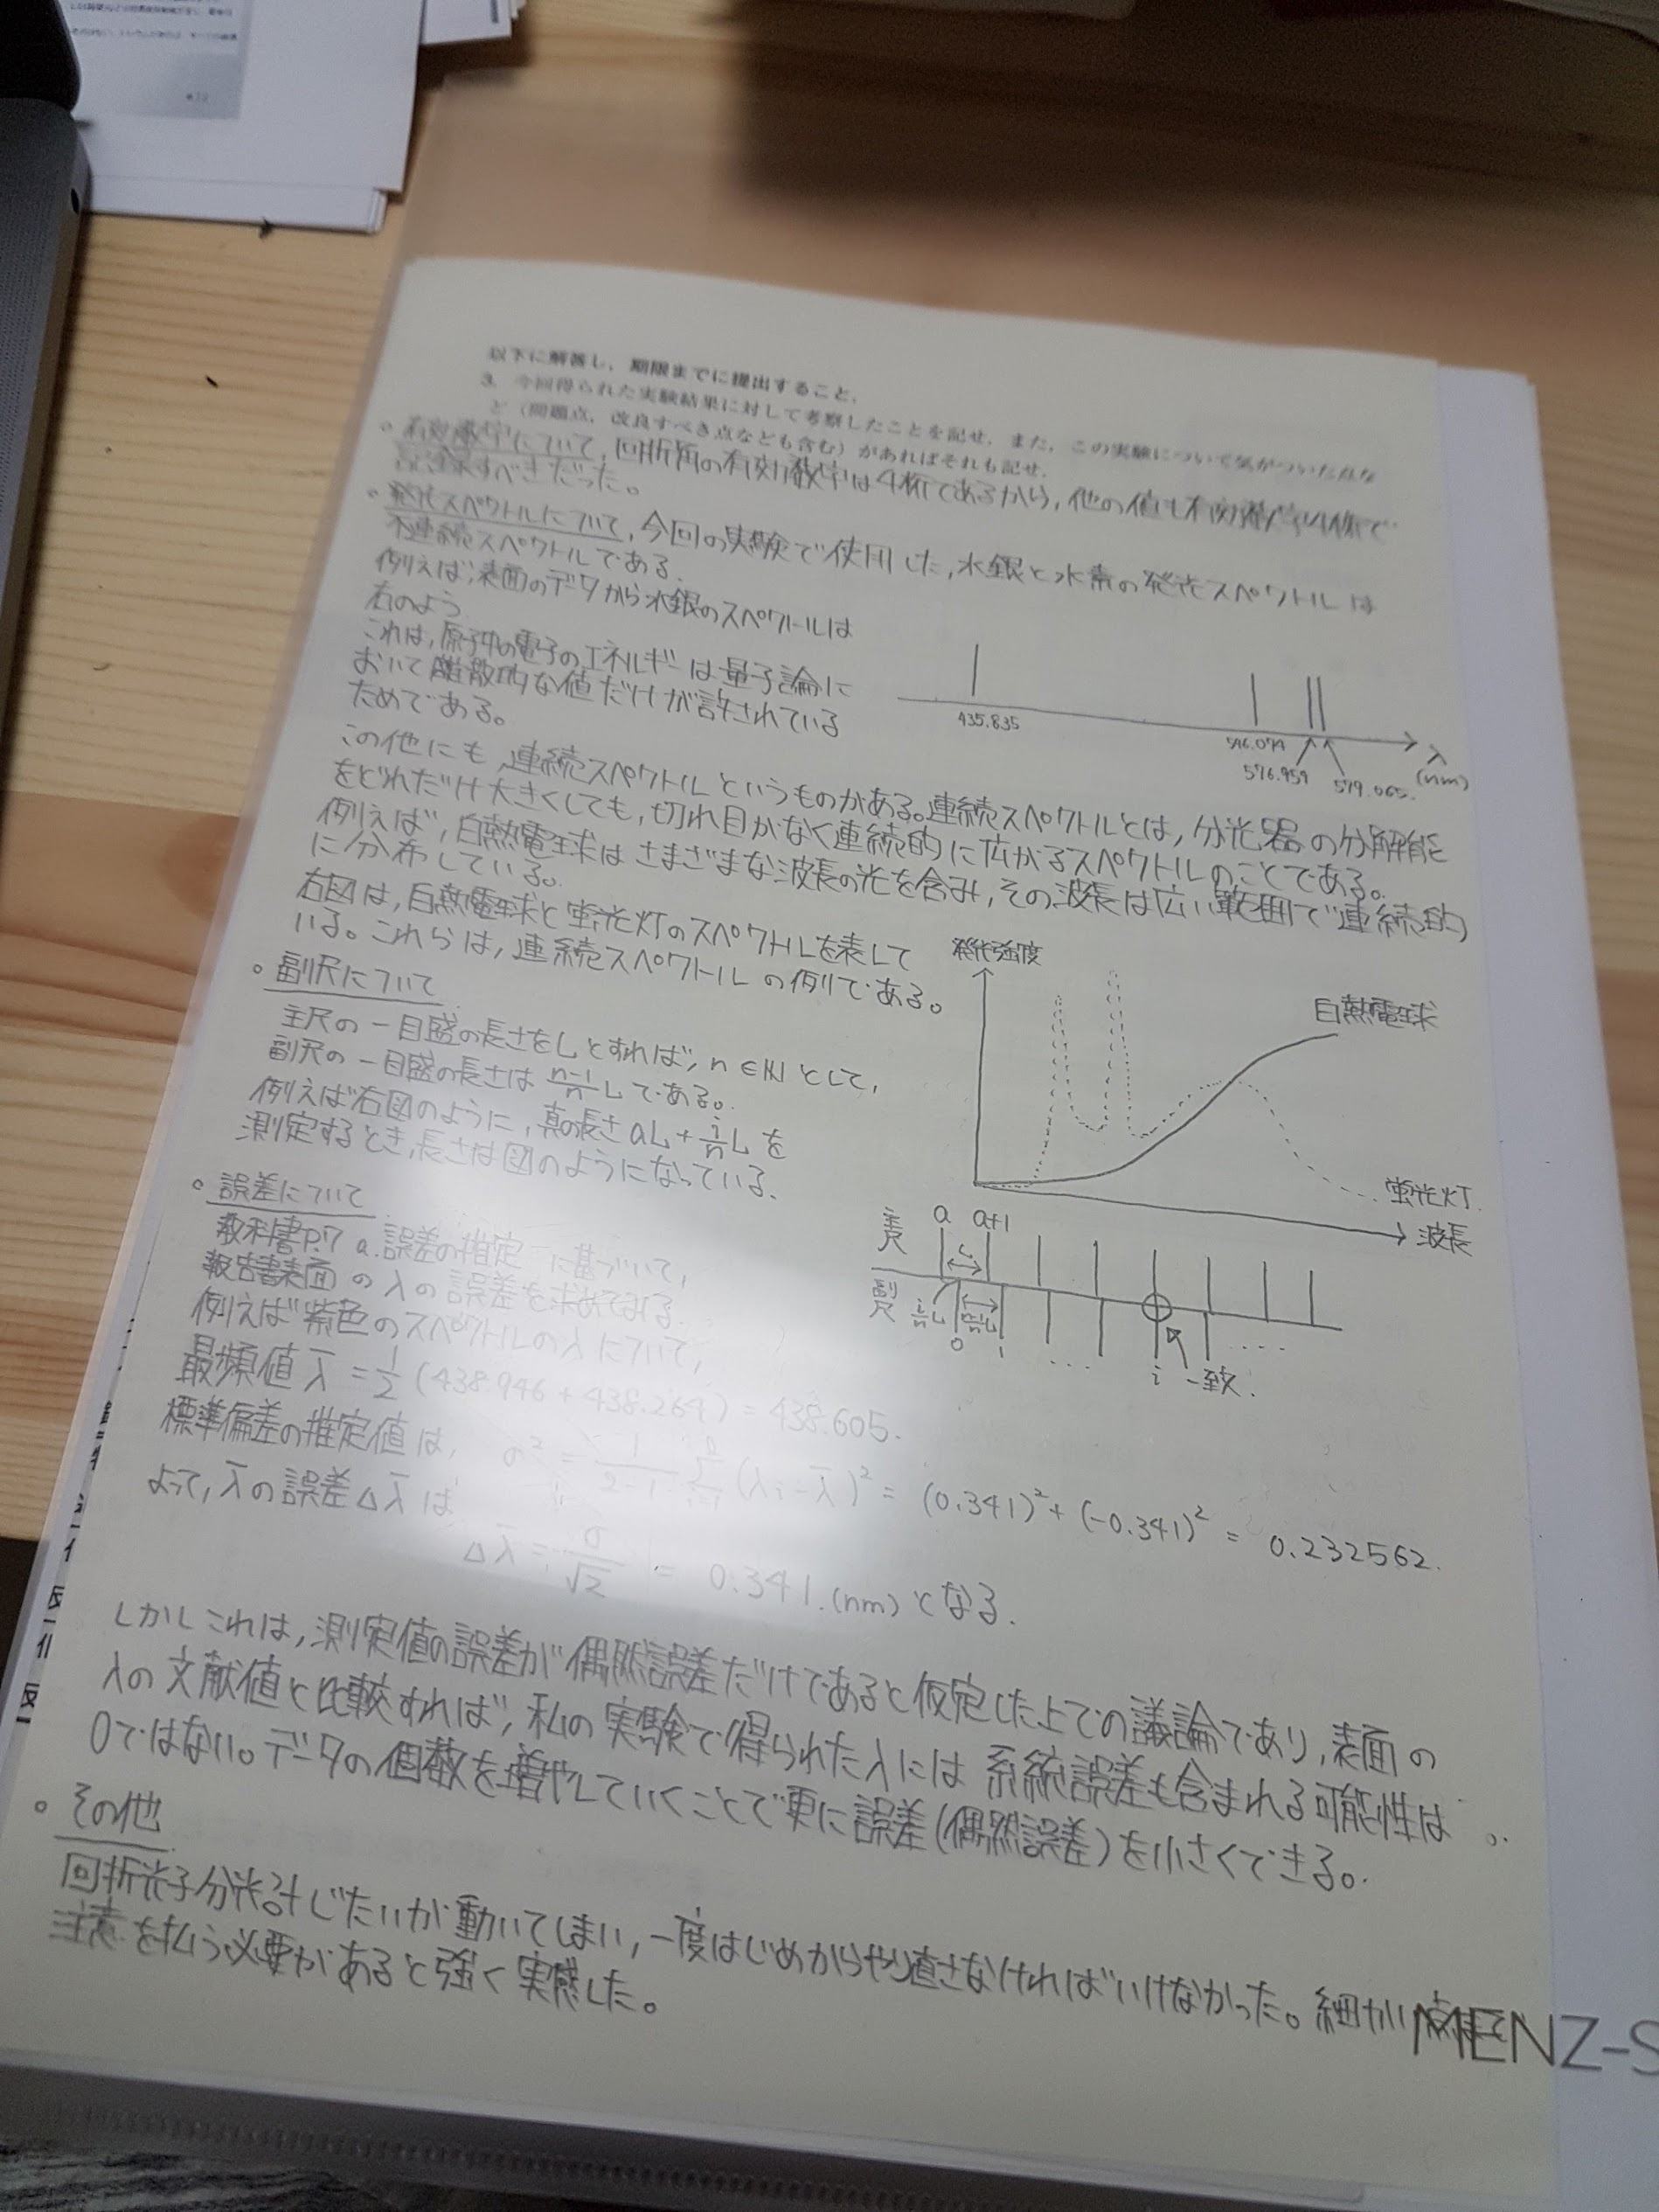 以下に解答し，期限までに提出すること．
3. 今回得られた実験結果に対して考察したことを記せ．また，この実験について気がついた点な
ど（問題点，改良すべき点なども含む）があればそれも記せ．
。有効数字について，回折角の有効数字は4桁であるから，他の値も有効数字4桁で
記録すべきだった。
。発光スペクトルについて，今回の実験で使用した，水銀と水素の発光スペクトルは
不連続スペクトルである．
例えば，表面のデータから水銀のスペクトルは
右のよう
これは，原子中の電子のエネルギーは量子論に
おいて離散的な値だけが許されている
ためである。
435.835
546.074
576.959
579.065.
λ
(nm)
この他にも，連続スペクトルというものがある。連続スペクトルとは，分光器の分解能
をどれだけ大きくしても，切れ目がなく連続的に広がるスペクトルのことである。
例えば，白熱電球はさまざまな波長の光を含み，その波長は広い範囲で連続的
に分布している。
右図は，白熱電球と蛍光灯のスペクトルを表して
いる。これらは，連続スペクトルの例である。
発光強度
白熱電球
蛍光灯
波長
。副尺について
主尺の一目盛の長さをLとすれば，n∈ℕとして，
副尺の一目盛の長さは n-1/n Lである。
例えば右図のように，真の長さaL+i/n Lを
測定するとき，長さは図のようになっている．
主尺
a
a+1
L
副尺
i/n L
n-1/n L
0
1
...
i
一致．
....
。誤差について
教科書P.7 a.誤差の推定 に基づいて，
報告書表面のλの誤差を求めてみる．
例えば紫色のスペクトルのλについて，
最頻値 λ̄ = 1/2 (438.946 + 438.264) = 438.605.
標準偏差の推定値は， σ² = 1/2-1 Σ (λi-λ̄)² = (0.341)² + (-0.341)² = 0.232562.
よって，λ̄の誤差Δλ̄は
Δλ̄ = σ/√2 = 0.341.(nm)となる．
しかしこれは，測定値の誤差が偶然誤差だけであると仮定した上での議論であり，表面の
λの文献値と比較すれば，私の実験で得られたλには系統誤差も含まれる可能性は
0ではない。データの個数を増やしていくことで更に誤差(偶然誤差)を小さくできる。
。その他
回折光子分光計じたいが動いてしまい，一度はじめからやり直さなければいけなかった。細かい点まで
注意を払う必要があると強く実感した。
MENZ-S